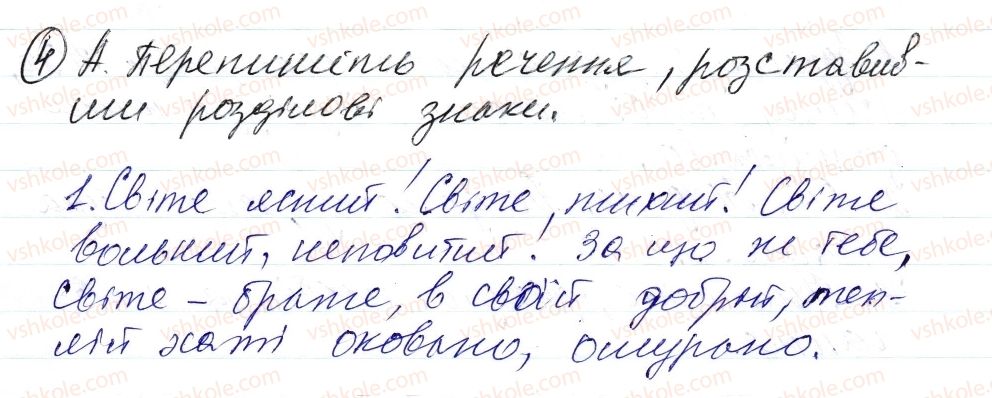 4 А. Перепишіть речення, розставив-
ши розділові знаки.
1. Світе ясний! Світе, тихий! Світе
вольний, неповитий! За що ж тебе,
світе - брате, в своїй добрій, теп-
лій хаті оковано, омурано.